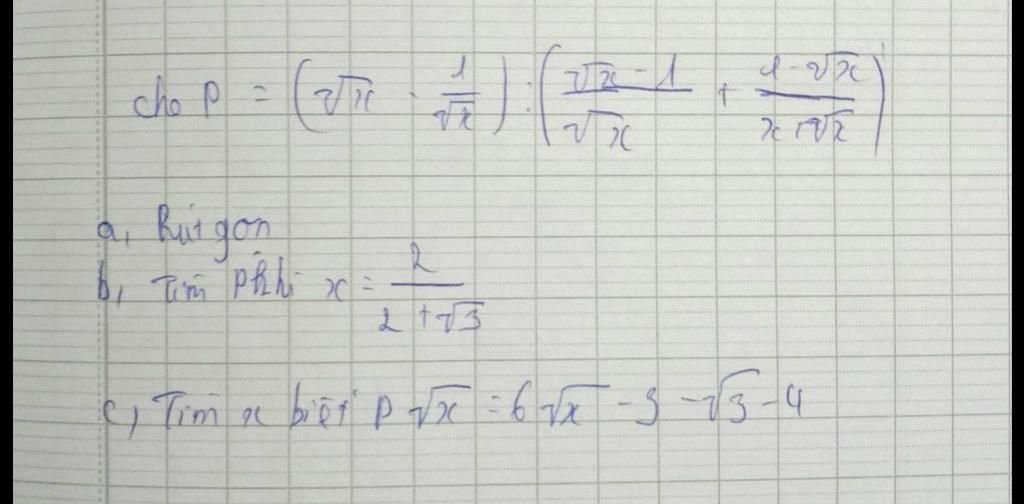 cho P = (√x - 1/√x) : ((√x - 1)/√x + (1 - √x)/(x + √x))
a, Rút gọn
b, Tìm P khi x = 2/(2 + √3)
c, Tìm x biết P√x = 6√x - 3 - √3 - 4